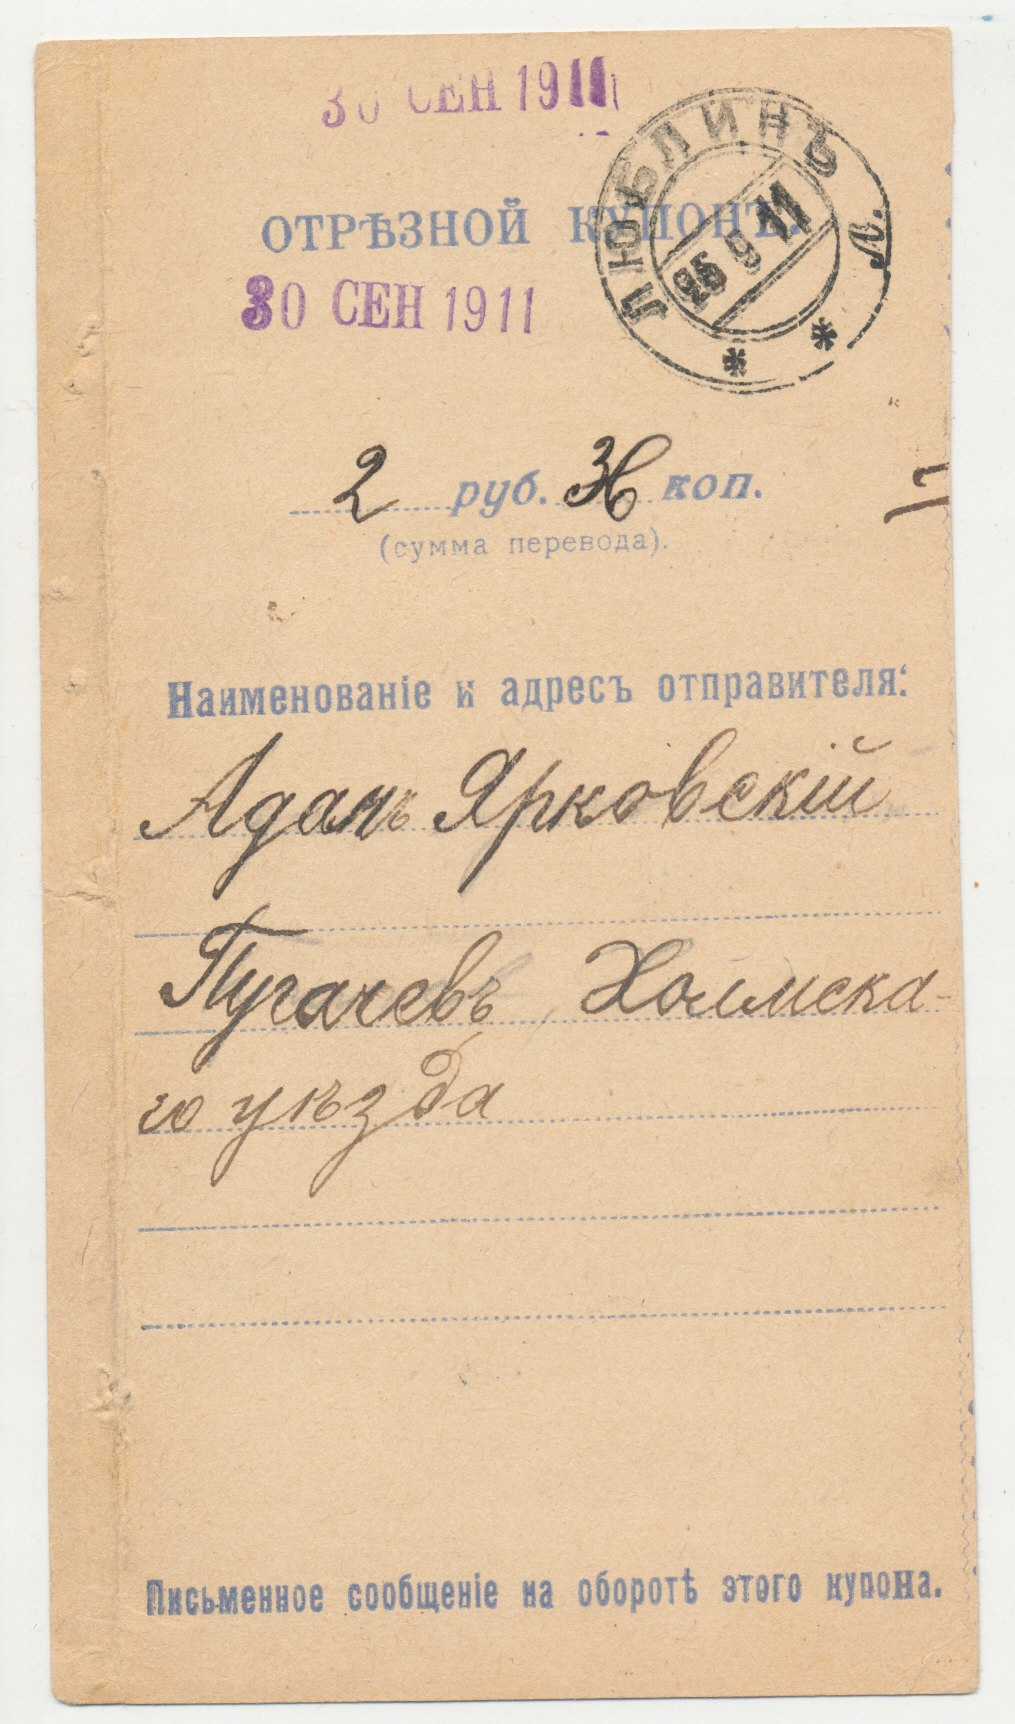 30 СЕН 1911
ЛЮБЛИНЪ Л.
26 9 11
ОТРѢЗНОЙ КУПОНЪ.
30 СЕН 1911
2 руб. 36 коп.
(сумма перевода).
Наименованіе и адресъ отправителя:
Адамъ Ярковскій
Пугачевъ, Холмска-
го уѣзда
Письменное сообщеніе на оборотѣ этого купона.